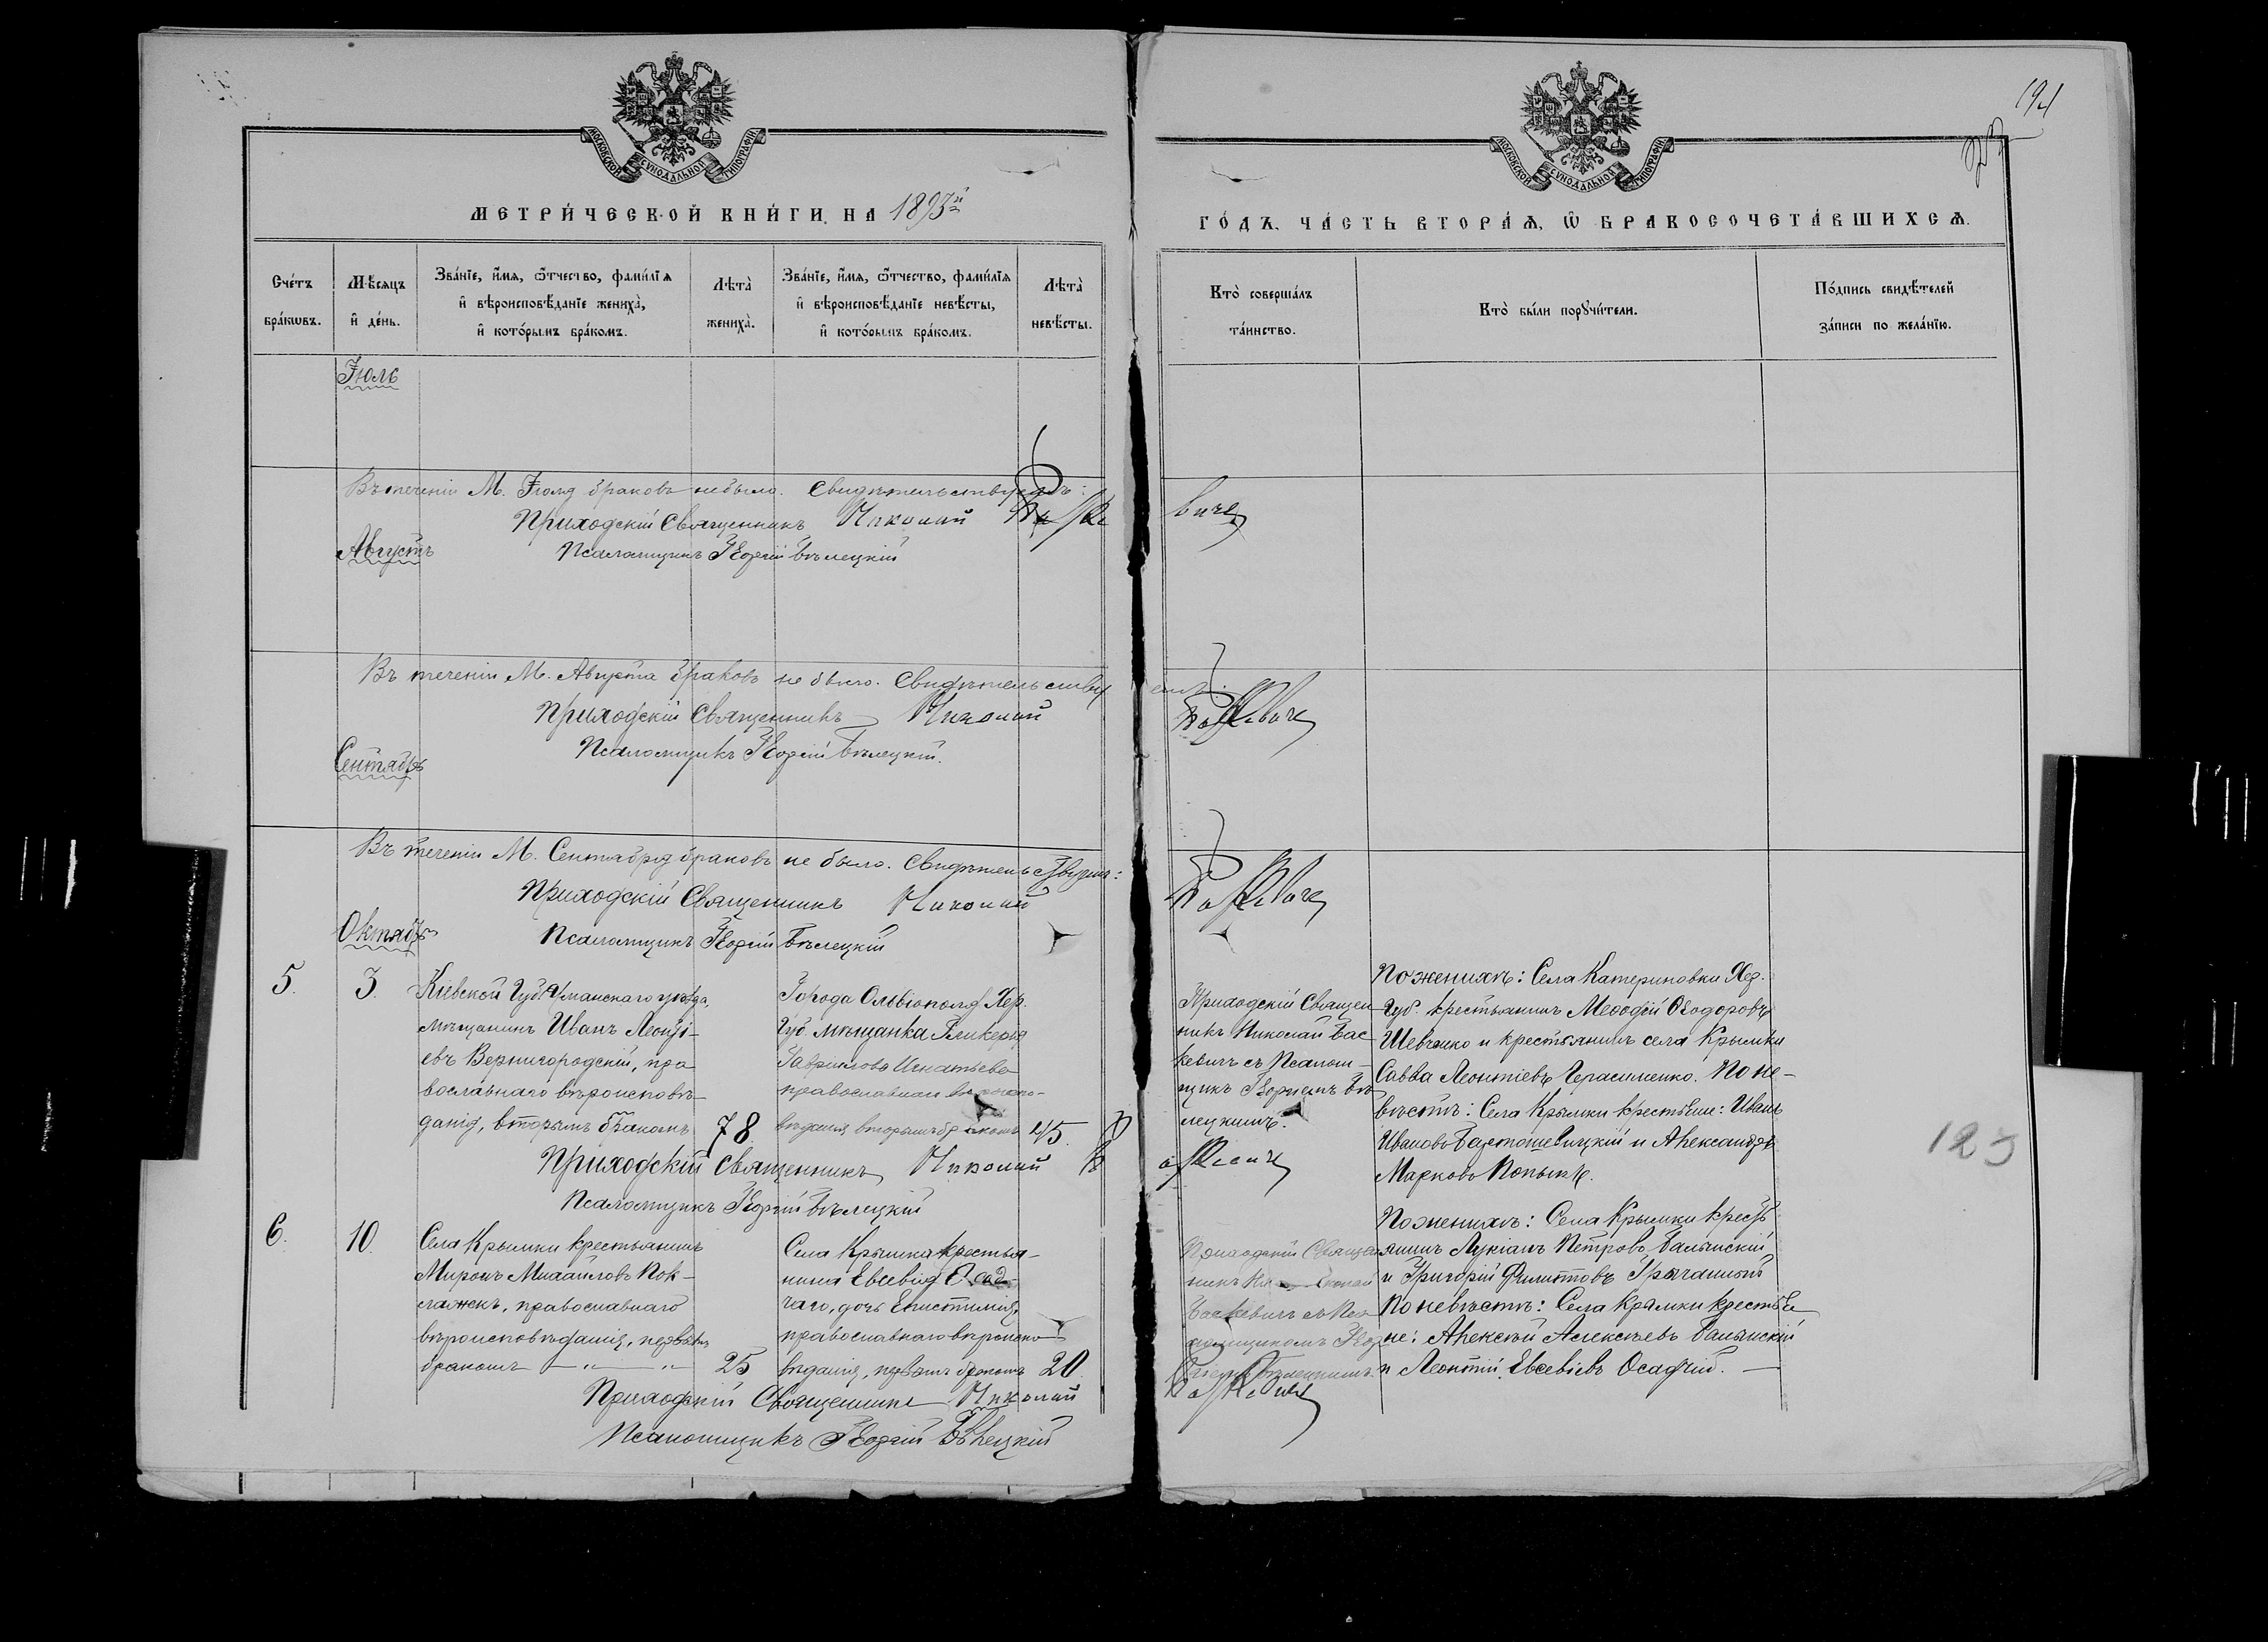 194
МОСКОВСКОЙ СѴНОДАЛЬНОЙ ТИПОГРАФІИ
МОСКОВСКОЙ СѴНОДАЛЬНОЙ ТИПОГРАФІИ
МЕТРИ́ЧЕСКОЙ КНИ́ГИ, НА 1893й
ГО́ДЪ, ЧА́СТЬ ВТОРА́Ѧ, Ѿ БРАКОСОЧЕТА́ВШИХСѦ.
Сче́тъ
бра́кѡвъ.
Мѣ́сяцъ
и҆ де́нь.
Зва́нїе, и҆́мя, ѻ҆́тчество, фами́лїя
и҆ вѣроисповѣ́данїе жениха̀,
и҆ кото́рымъ бра́комъ.
Лѣта̀
жениха̀.
Зва́нїе, и҆́мя, ѻ҆́тчество, фами́лїя
и҆ вѣроисповѣ́данїе невѣ́сты,
и҆ кото́рымъ бра́комъ.
Лѣта̀
невѣ́сты.
Кто̀ соверша́лъ
та́инство.
Кто̀ бы́ли порꙋчи́тели.
По́дпись свидѣ́телей
за́писи по жела́нїю.
Іюль
Въ теченіи М. Іюля браковъ не было. Свидѣтельствуетъ:
Приходскій Священникъ Николай Баскевичъ
Августъ
Псаломщикъ Георгій Бѣлецкій
Въ теченіи М. Августа браковъ не было. Свидѣтельствуетъ:
Приходскій Священникъ Николай Баскевичъ
Псаломщикъ Георгій Бѣлецкій.
Сентябрь
Въ теченіи М. Сентября браковъ не было. Свидѣтельствуетъ:
Приходскій Священникъ Николай Баскевичъ
Октябрь
Псаломщикъ Георгій Бѣлецкій
5.
3.
Кіевской Губ. Уманскаго уѣзда,
мѣщанинъ Иванъ Леонті-
евъ Вернигородскій, пра
вославнаго вѣроисповѣ-
данія, вторымъ бракомъ
78.
Города Ольвіополя Хер.
Губ. мѣщанка Гликерія
Гавриилова Игнатьева
православнаго вѣроиспо-
вѣданія вторымъ бракомъ
45.
Приходскій Священ
никъ Николай Бас
кевичъ съ Псалом-
щикъ Георгіемъ Бѣ
лецкимъ.
По женихѣ: Села Катериновки Хер.
Губ. крестьянинъ Меѳодій Ѳеодоровъ
Шевченко и крестьянинъ села Крымки
Савва Леонтіевъ Герасименко. По не-
вѣстѣ: Села Крымки крестьяне: Иванъ
Ивановъ Бартошевицкій и Александръ
Марковъ Попыкъ.
Приходскій Священникъ Николай Баскевичъ
Псаломщикъ Георгій Бѣлецкій
123
6.
10.
Села Крымки крестьянинъ
Миронъ Михайловъ Пок-
лажекъ, православнаго
вѣроисповѣданія, первымъ
бракомъ — „ — „
25
Села Крымки крестья-
нина Евсевія Осад-
чаго, дочь Епистимія,
православнаго вѣроиспо
вѣданія, первымъ бракомъ
20
Приходскій Священ
никъ Николай
Баскевичъ съ Пса
ломщикомъ Геор
гіемъ Бѣлецкимъ.
По женихѣ: Села Крымки кресть
янинъ Лукіанъ Петровъ Балынскій
и Григорій Филиповъ
По невѣстѣ: Села Крымки крестья
не: Алексѣй Алексѣевъ Балынскій
и Леонтій Евсевіевъ Осадчій. —
Приходскій Священникъ Николай Баскевичъ
Псаломщикъ Георгій Бѣлецкій